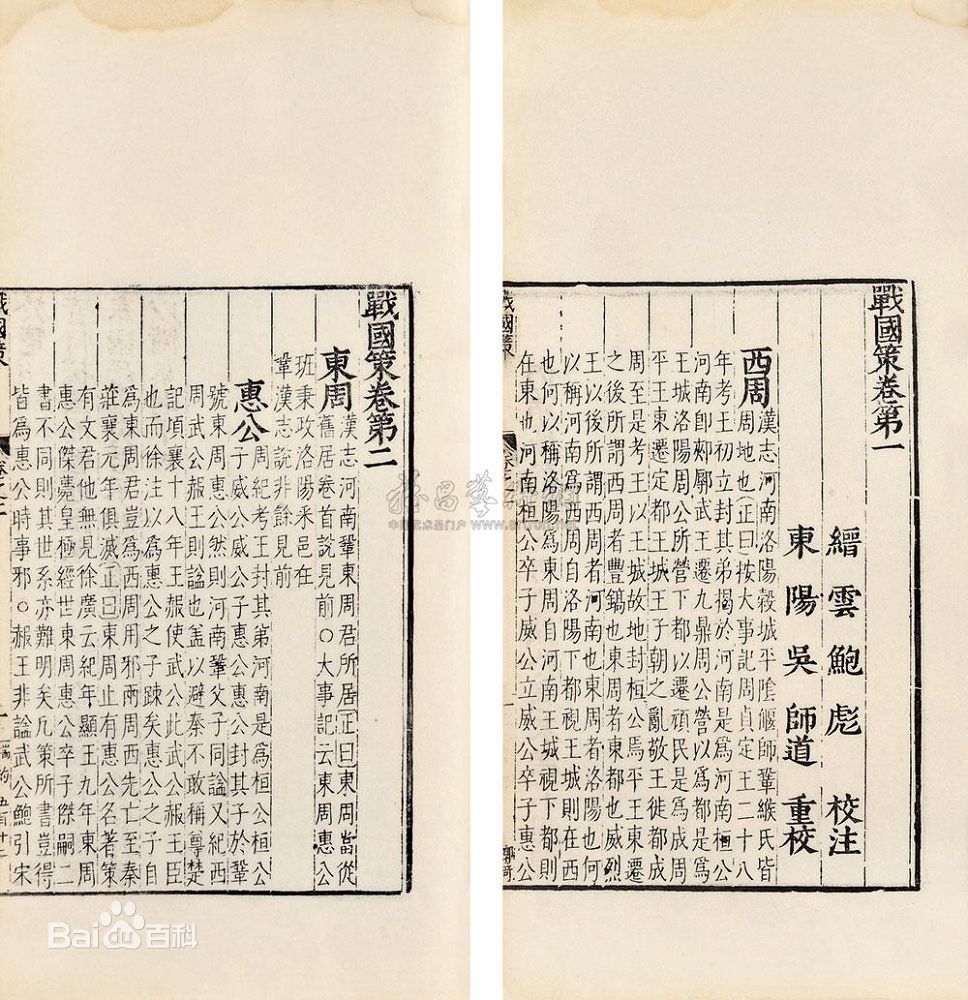 戰國策卷第一
縉雲鮑彪校注
東陽吳師道重校
西周
漢志河南洛陽穀城平陰偃師鞏緱氏皆
周地也正曰按大事記周貞定王二十八
年考王初立封其弟揭於河南是爲河南桓公
河南卽郟鄏武王遷九鼎周公營以爲都是爲
王城洛陽周公所營下都以遷頑民是爲成周
平王東遷定都王城王子朝之亂敬王徙都成
周至是考王以王城故地封桓公焉平王東遷
之後所謂西周者豐鎬也東周者東都也威烈
王以後所謂西周者河南也東周者洛陽也何
以稱河南爲西周自洛陽下都視王城則在西
也何以稱洛陽爲東周自河南王城視下都則
在東也河南桓公卒子威公立威公卒子惠公
戰國策
戰國策卷第二
東周
漢志河南鞏東周君所居正曰東周當從
舊居卷首說見前○大事記云東周惠公
班秉政洛陽采邑在
鞏漢志說非餘見前
惠公
周紀考王封其弟河南是爲桓公桓公
子威公威公子惠公惠公封其子於鞏
號東周惠公然則河南鞏父子同諡又紀西
周武公赧王則諡也盖以避秦不敢稱尊楚
記頃襄十八年王赧使武公此武公赧王臣
也而徐注以爲惠公之子踈矣惠公之子自
爲東周君豈爲西周用邪兩周西先亡至秦
莊襄元年俱滅正曰東周止有惠公名著策
有文君他無見徐廣云紀年顯王九年東周
惠公傑薨皇極經世東周惠公卒子傑嗣二
書不同則其世系亦難明矣凡策所書豈得
皆爲惠公時事邪○赧王非諡武公鮑引宋
戰國策
Bai百科